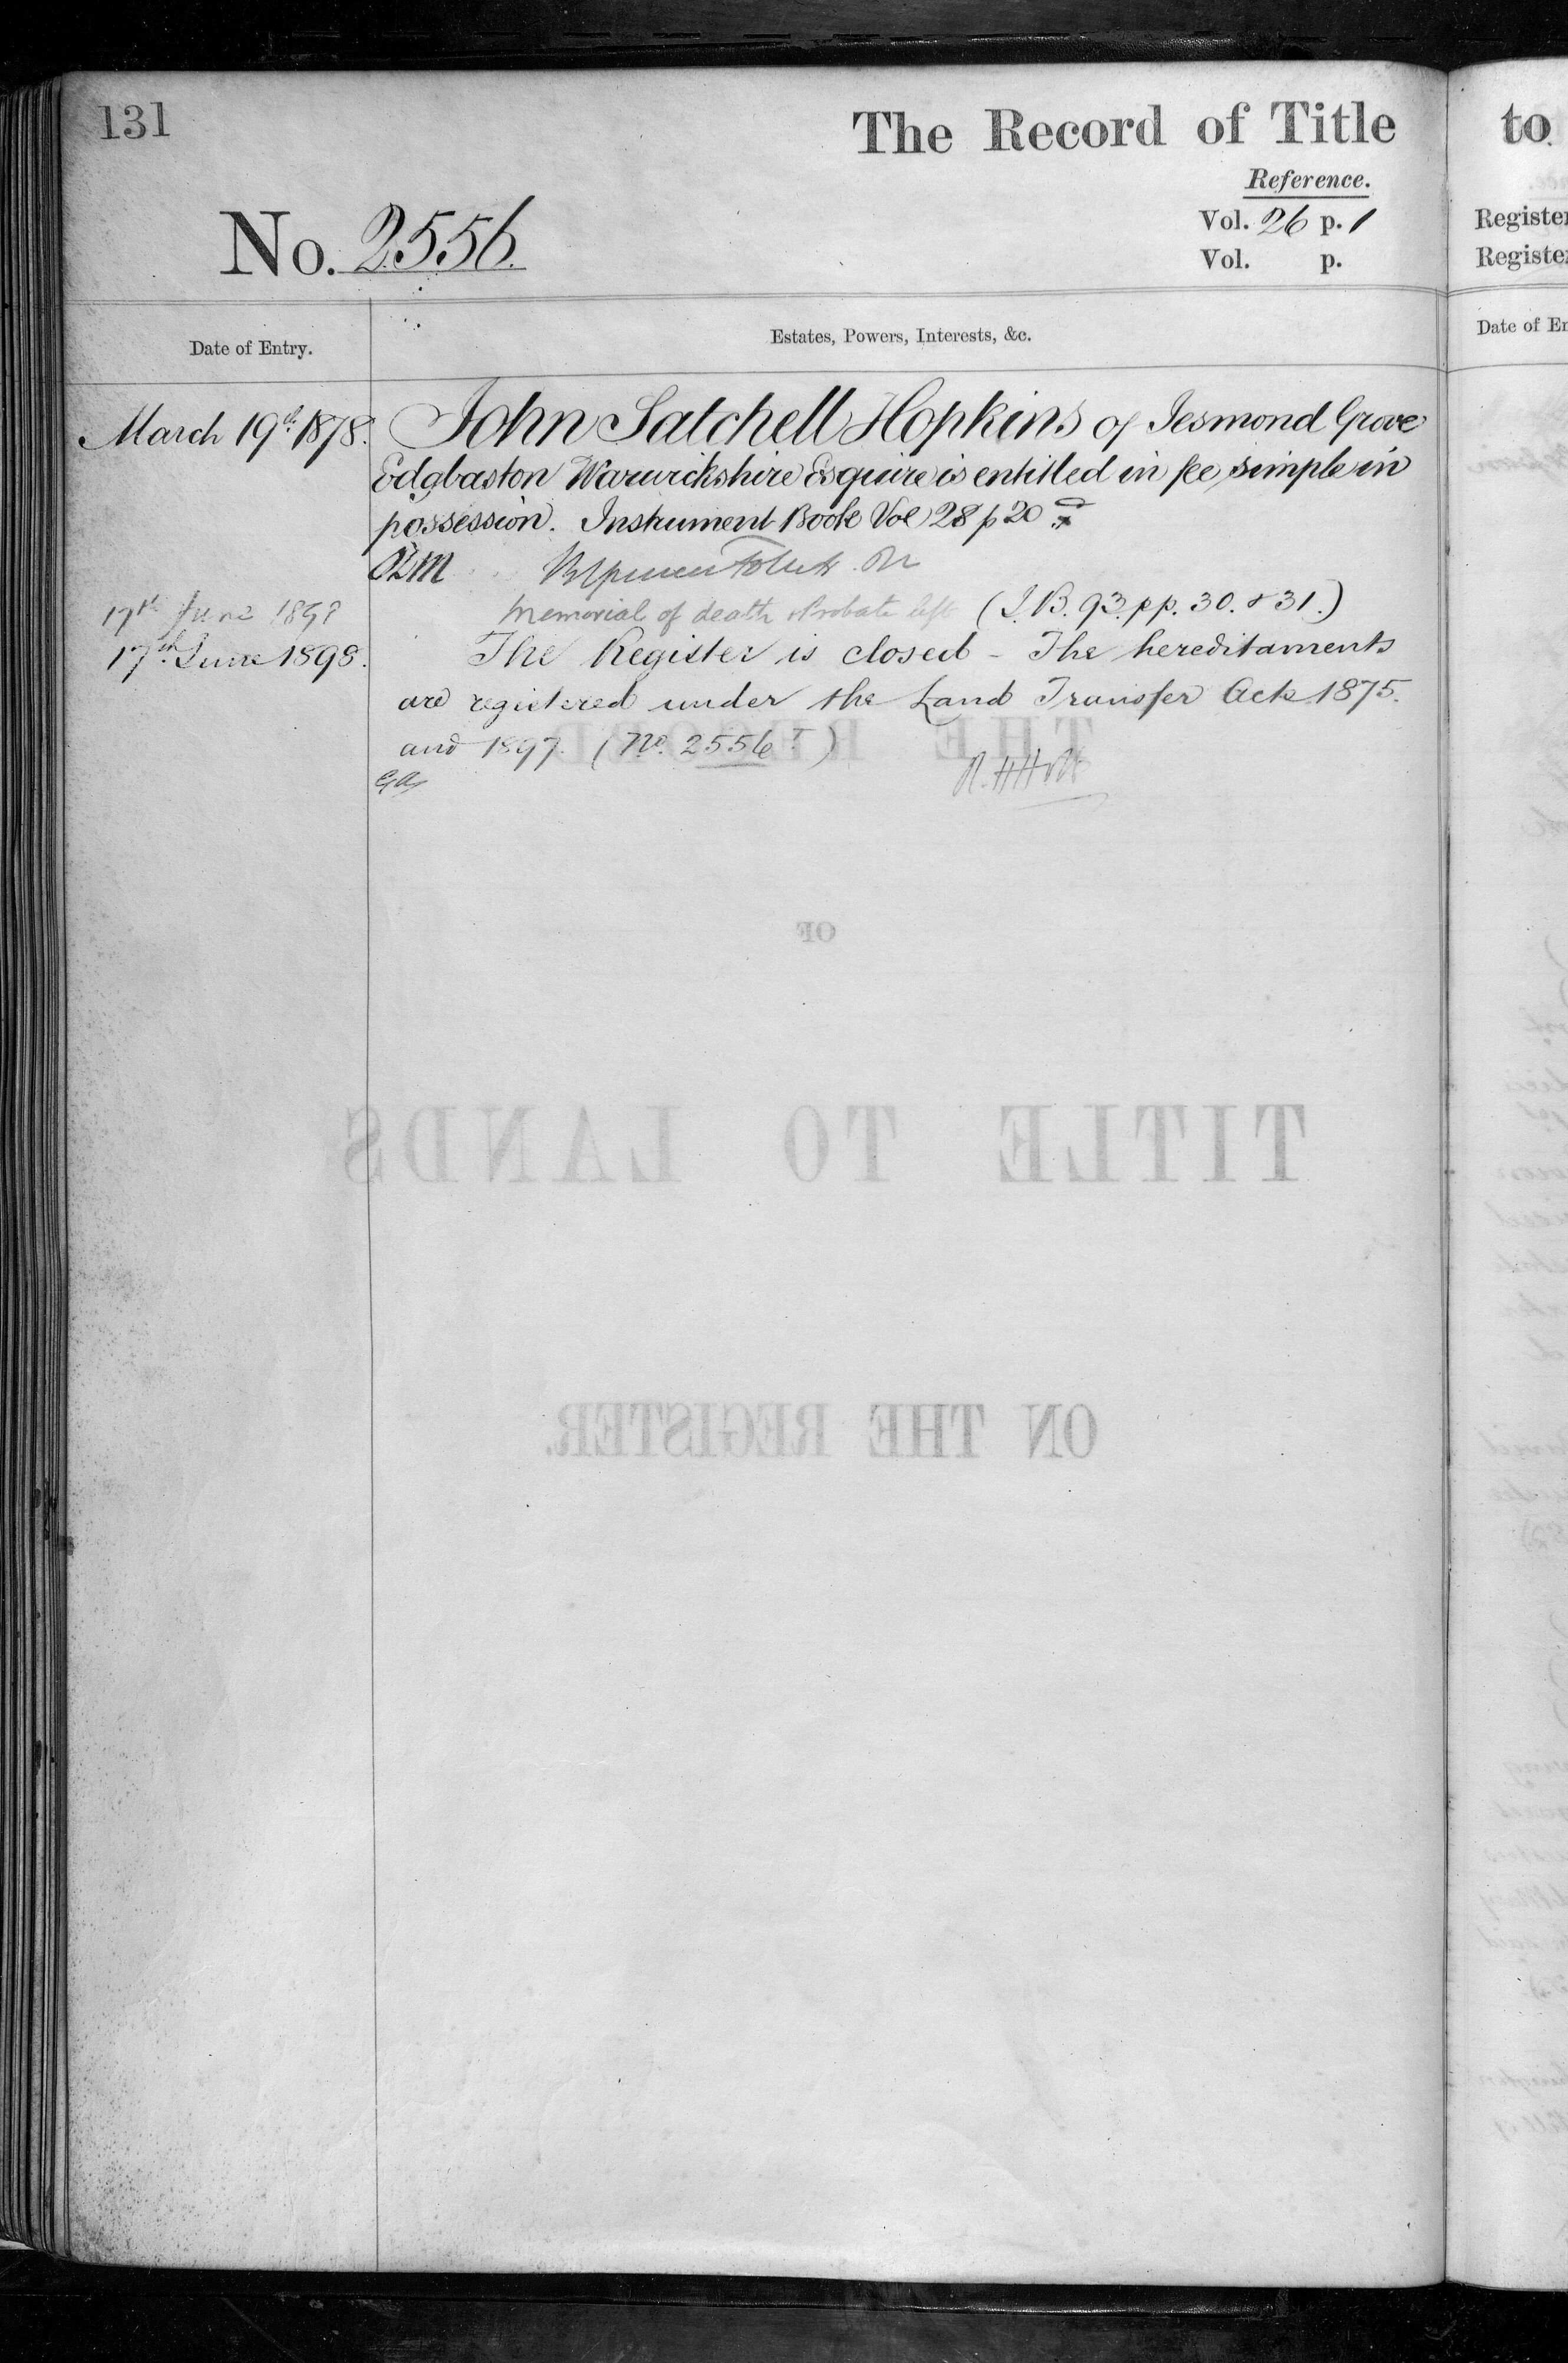 131
The Record of Title
Reference.
No. 2556.
Vol. 26 p. 1
Vol. p.
Date of Entry.
Estates, Powers, Interests, &c.
March 19th 1878. John Satchell Hopkins of Jesmond Grove
Edgbaston Warwickshire Esquire is entitled in fee simple in
possession. Instrument Book Vol 28 p 20
17th June 1898 Memorial of death & Probate left (I.B. 93. pp. 30. & 31.)
17th June 1898. The Register is closed - The hereditaments
are registered under the Land Transfer Acts 1875.
and 1897. (No. 2556 T)
THE RECORD
OF
TITLE TO LANDS
ON THE REGISTER.
to
Register
Register
Date of En